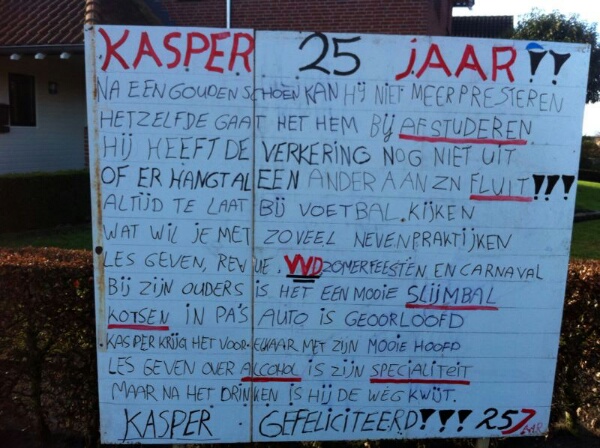 KASPER 25 JAAR!!
NA EEN GOUDEN SCHOEN KAN HIJ NIET MEER PRESTEREN
HETZELFDE GAAT HET HEM BIJ AFSTUDEREN
HIJ HEEFT DE VERKERING NOG NIET UIT
OF ER HANGT AL EEN ANDER AAN ZN FLUIT!!!
ALTIJD TE LAAT BIJ VOETBAL KIJKEN
WAT WIL JE MET ZOVEEL NEVENPRAKTIJKEN
LES GEVEN, REVUE, VVD ZOMERFEESTEN EN CARNAVAL
BIJ ZIJN OUDERS IS HET EEN MOOIE SLIJMBAL
KOTSEN IN PA'S AUTO IS GEOORLOOFD
KASPER KRIJG HET VOOR ELKAAR MET ZIJN MOOIE HOOFD
LES GEVEN OVER ALCOHOL IS ZIJN SPECIALITEIT
MAAR NA HET DRINKEN IS HIJ DE WEG KWIJT.
KASPER GEFELICITEERD!!! 25